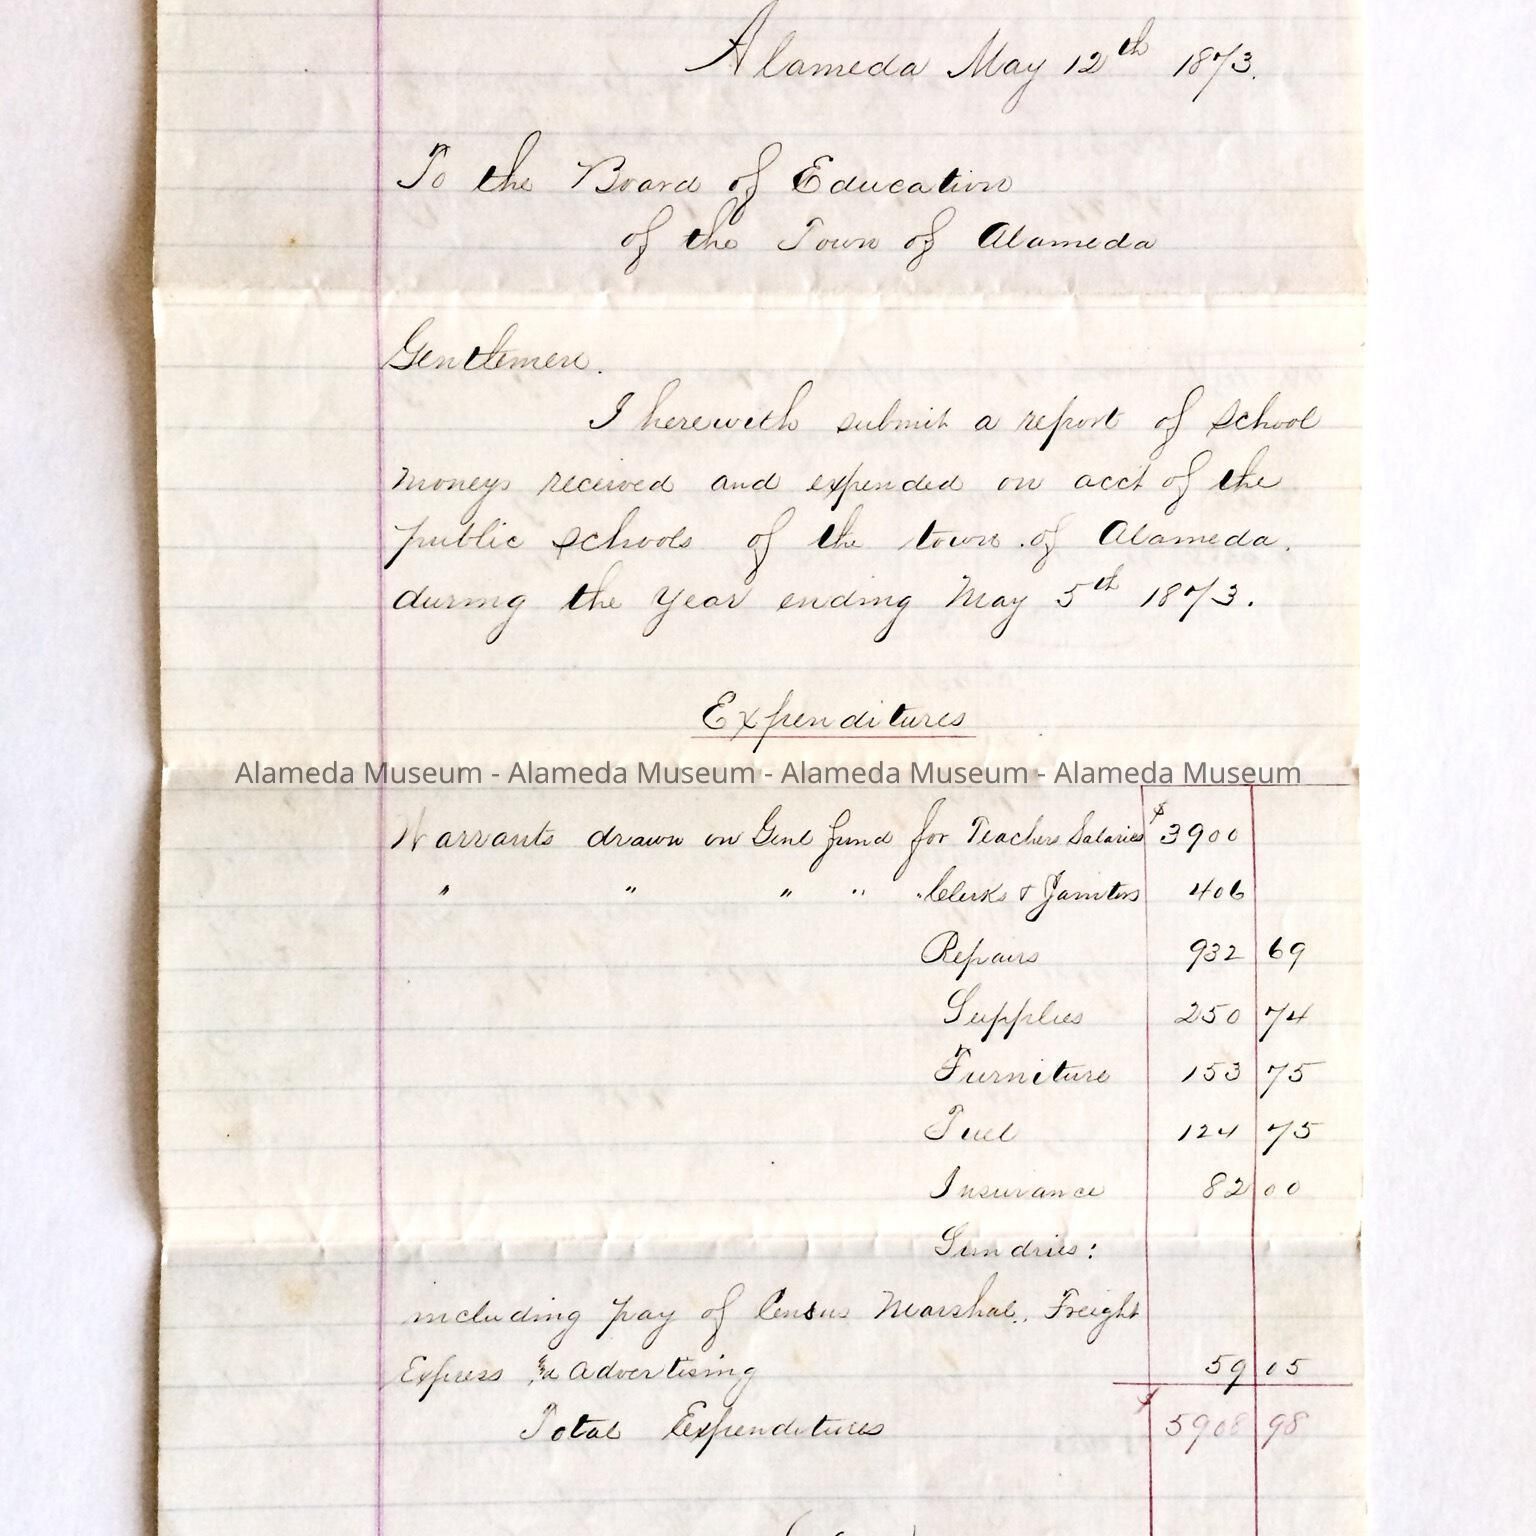 Alameda May 12th 1873.
To the Board of Education
of the Town of Alameda
Gentlemen.
I herewith submit a report of School
moneys received and expended on acct of the
public schools of the town of Alameda.
during the year ending May 5th 1873.
Expenditures
Alameda Museum - Alameda Museum - Alameda Museum - Alameda Museum
Warrants drawn on Genl fund for Teachers Salaries $ 3900
" " " " " Clerks & Janitors 406
Repairs 932 69
Supplies 250 74
Furniture 153 75
Fuel 124 75
Insurance 82 00
Sundries:
including pay of Census Marshal, Freight
Express & Advertising 59 05
Total Expenditures $ 5908 98